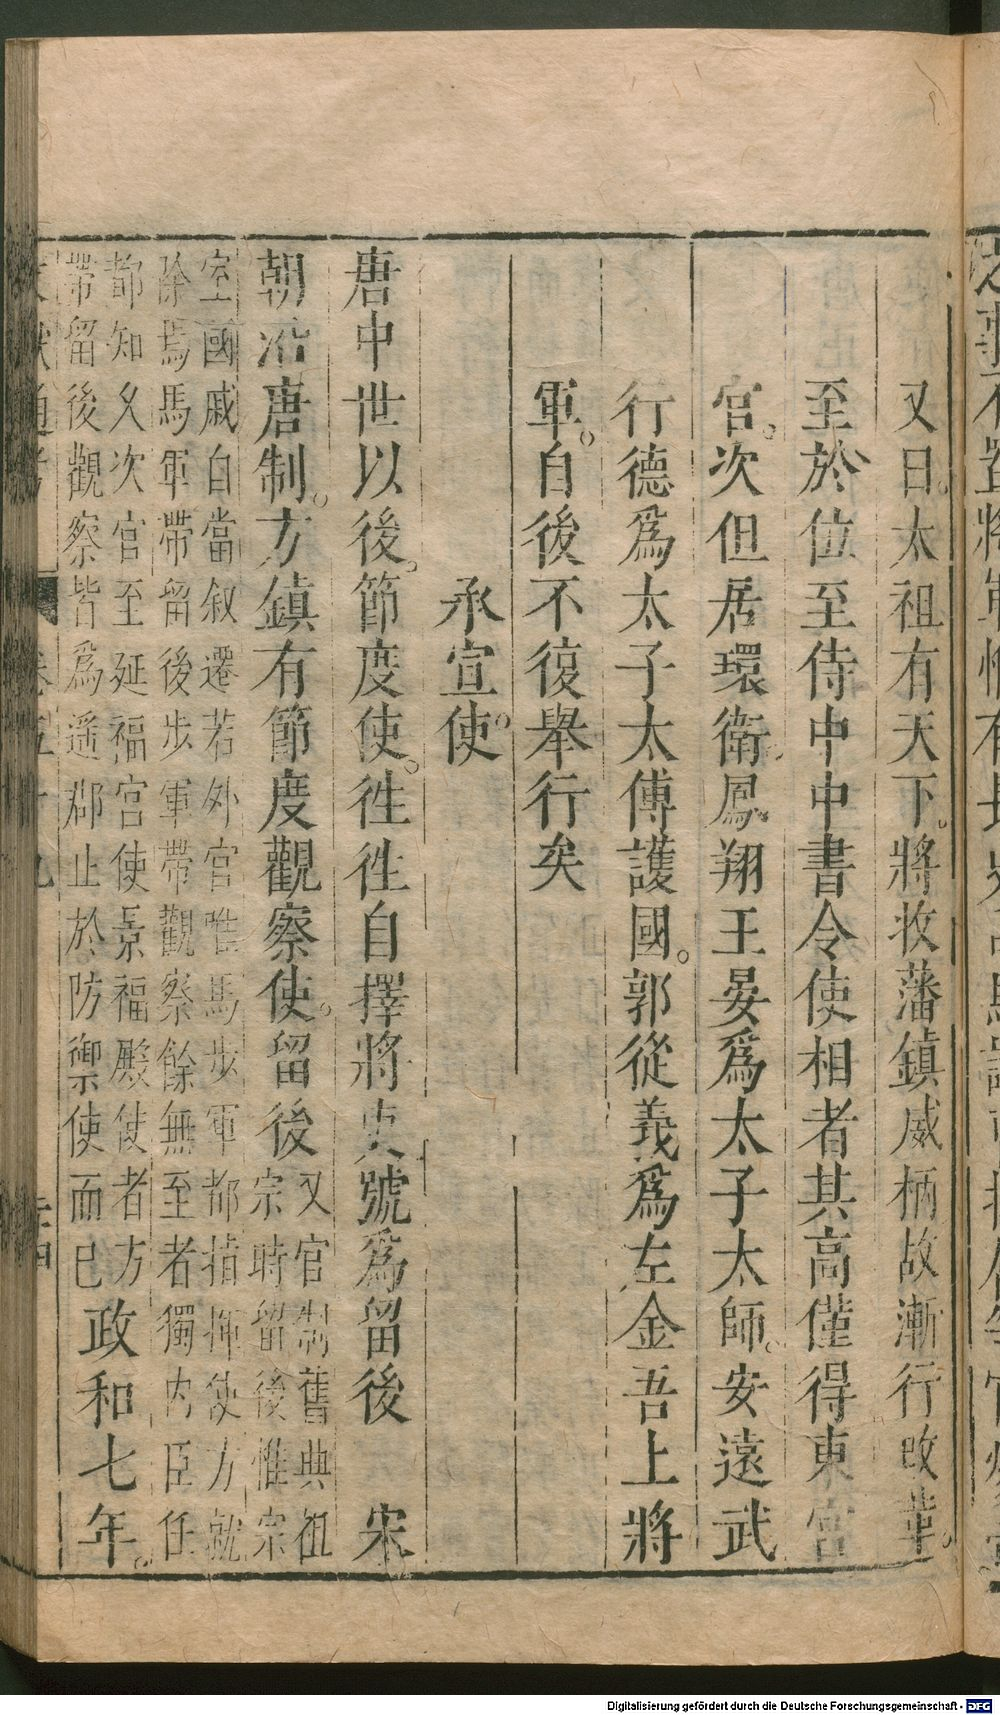 又曰。太祖有天下。將收藩鎮威柄故漸行改革。
至於位至侍中中書令使相者其高僅得東宮
官。次但居環衛鳳翔王晏爲太子太師。安遠武
行德爲太子太傅護國。郭從義爲左金吾上將
軍。自後不復舉行矣
承宣使。
唐中世以後。節度使。徃徃自擇將吏號爲留後 宋
朝沿唐制。方鎮有節度觀察使。留後
又官制舊典祖
宗時留後惟宗
室國戚自當叙遷若外官唯馬步軍都指揮使方就
除焉馬軍帶留後步軍帶觀察餘無至者獨内臣任
都知久次官至延福宮使景福殿使者方
帶留後觀察皆爲遥郡止於防禦使而已
政和七年。
文獻通考 卷五十九 二十四
Digitalisierung gefördert durch die Deutsche Forschungsgemeinschaft - DFG